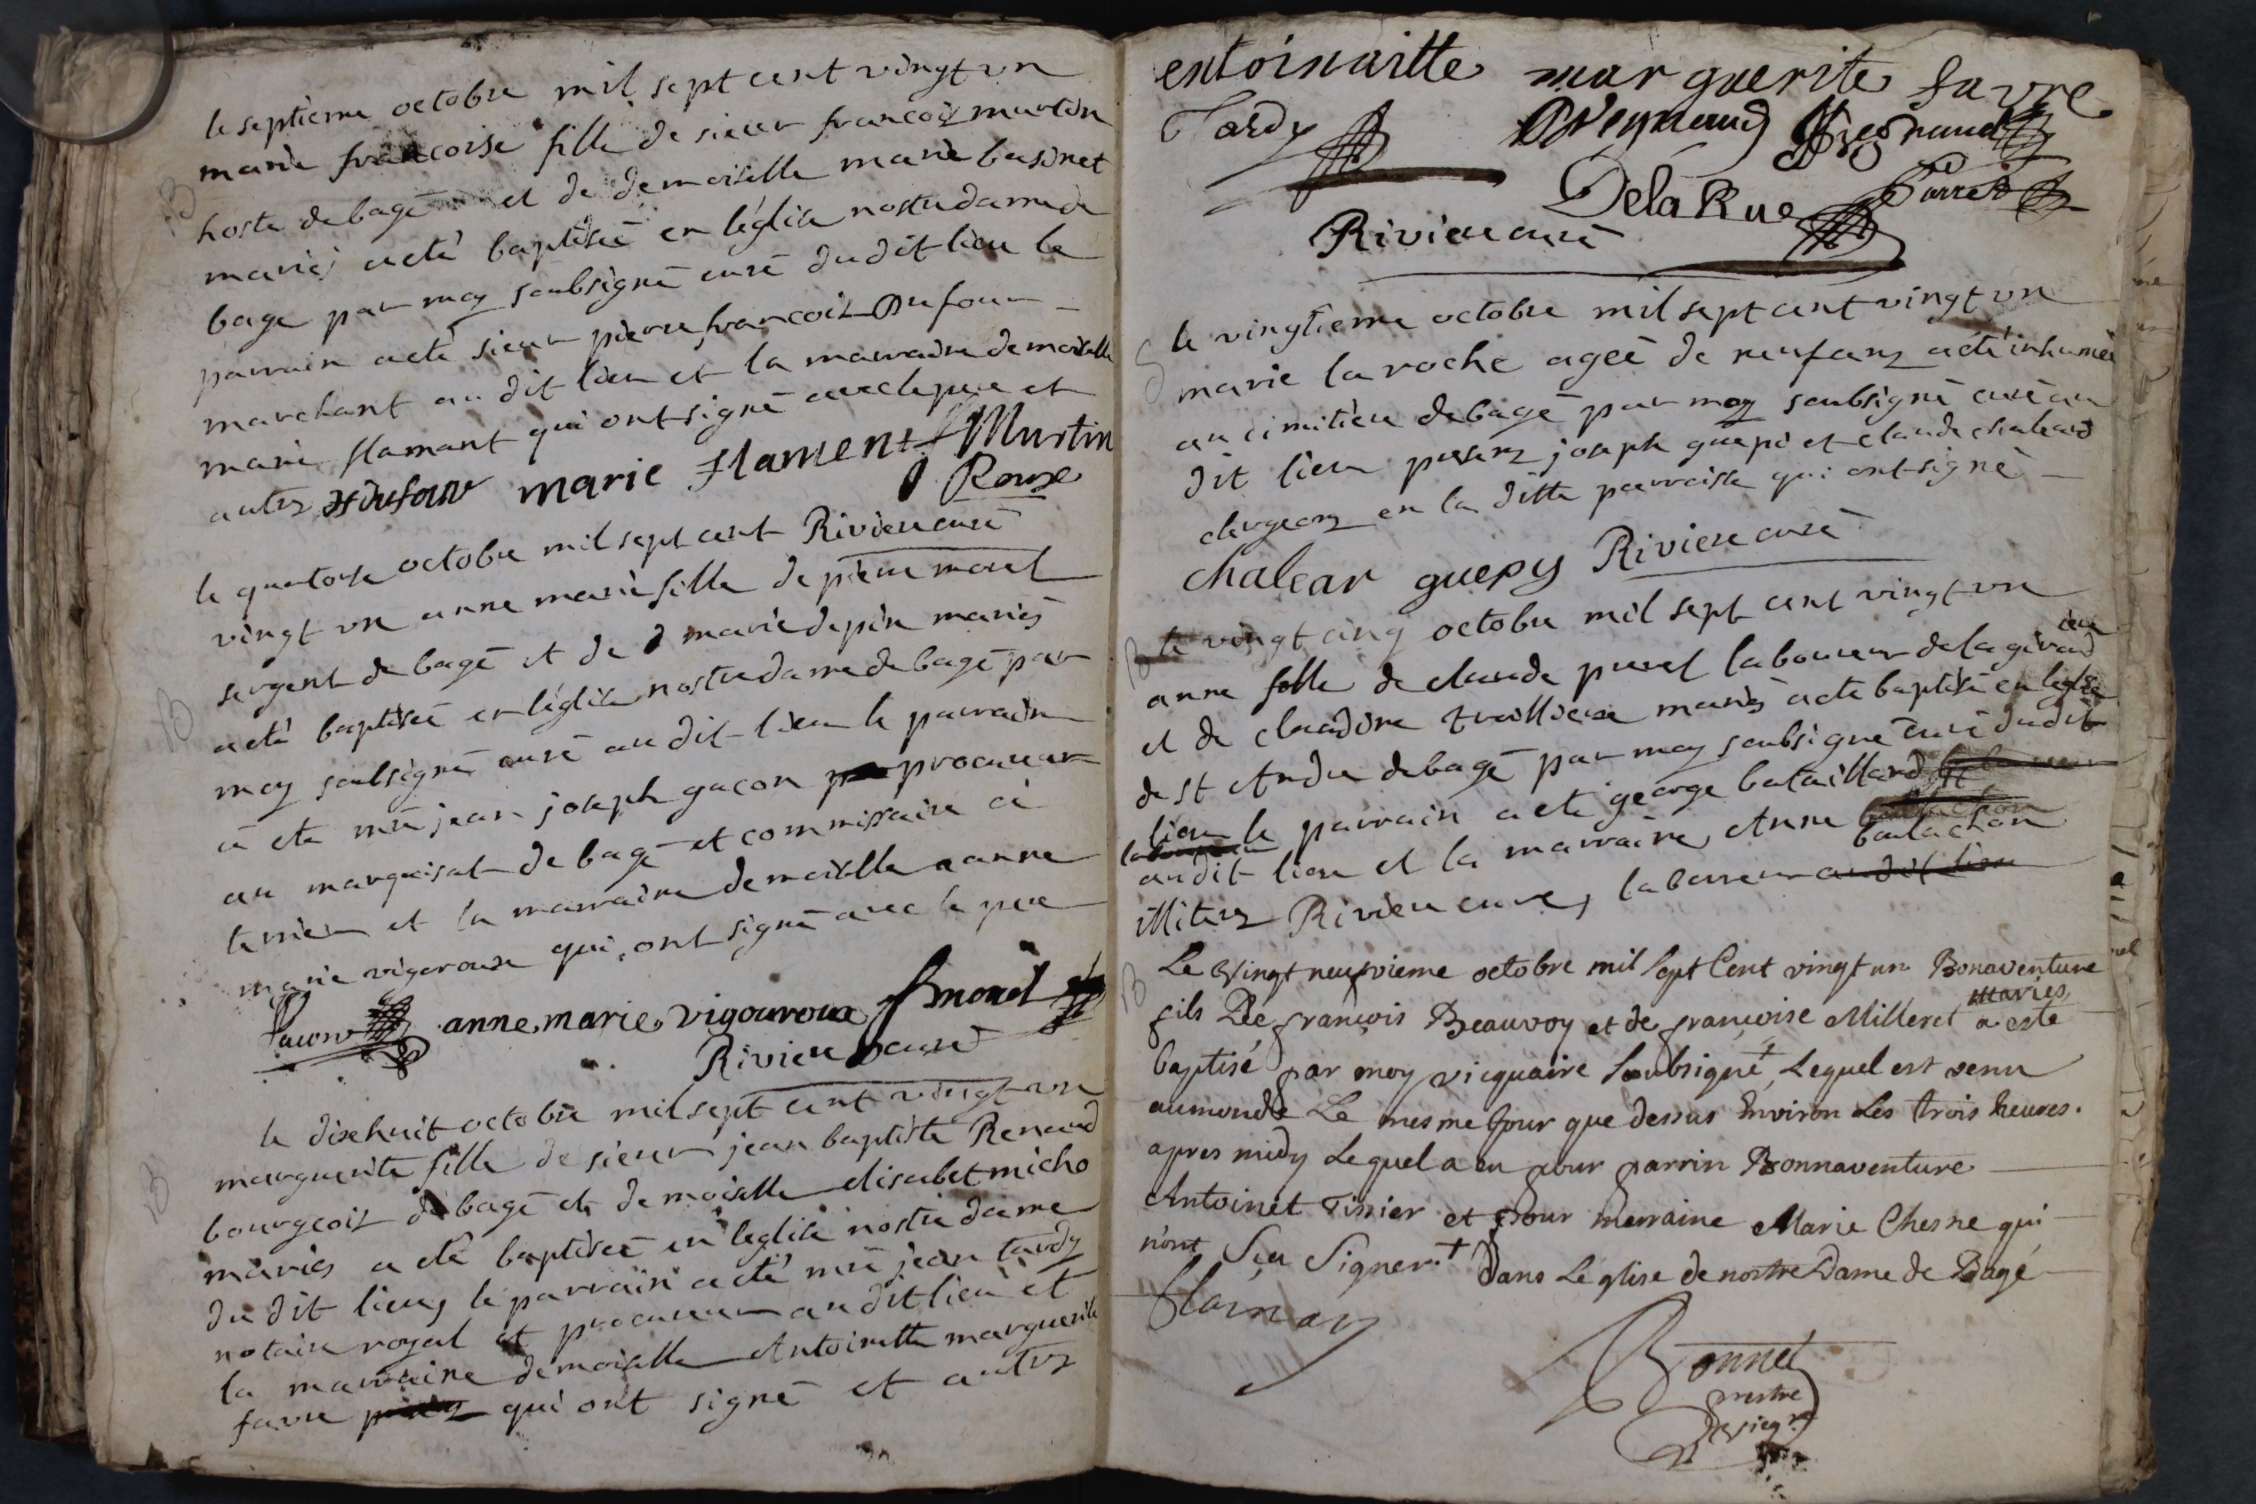 le septieme octobre mil sept cent vingt vn
marie francoise fille de sieur francois martin
hoste de bagé et de demoiselle marie basinet
mariés a eté baptisée en léglise nostre dame de
bage par moy soubsigné curé du dit lieu le
parrain a eté sieur pierre francois Dufour
marchant au dit lieu et la marraine demoiselle
marie flamant qui ont signé avec le pere et
autres Dufour marie flament Martin
Roux
le quatorse octobre mil sept cent Riviere curé
vingt vn anne marie fille de pierre morel
sergent de bagé et de marie depin mariés
a eté baptisée en léglise nostre dame de bagé par
moy soubsigné curé au dit lieu le parrain
a eté mre jean joseph gacon procureur
au marquisat de bagé et commissaire à
terrier et la marraine demoiselle anne
marie vigerouse qui ont signé avec le pere
Gacon anne marie vigouroux morel
Riviere curé
le dixehuit octobre mil sept cent vingt vn
marguerite fille de sieur jean baptiste Renaud
bourgeois de bagé et demoiselle elisabet micho
mariés a eté baptisée en leglise nostre dame
du dit lieu, le parrain a eté mre jean tardy
notaire royal et procureur au dit lieu et
la marraine demoiselle Antoinette marguerite
favre qui ont signé et autres
entoinaitte marguerite favre
Tardy Reynaud Regnaud
DelaRue Parret
Riviere curé
le vingtieme octobre mil sept cent vingt vn
marie la roche agée de neuf ans a eté inhumée
au cimitiere de bagé par moy soubsigné curé au
dit lieu presens joseph guepi et claude chaleard
clergeons en la ditte parroisse qui ont signé
chalear guepy Riviere curé
le vingt cinq octobre mil sept cent vingt vn
anne fille de claude purel laboureur de la girard
iere
et de claudine truilliere mariés a eté baptisée en leglise
de st Andre de bagé par moy soubsigné curé du dit
lieu le parrain a eté george bataillard
laboureur
au dit lieu et la marraine Anne
boulachon
illiteres Riviere curé, laboureur au dit lieu
Le Vingt neufvieme octobre mil Sept Cent vingt un Bonaventure
Mariés
fils De françois Beauvoy et de françoise Milleret a esté
baptisé par moy vicquaire Soubsigné + Lequel est venu
au monde Le mesme Jour que dessus Environ Les trois heures.
apres midy Lequel a eu pour parrin Bonnaventure
Antoinet Tissier et pour merraine Marie Chesne qui
n'ont Seu Signer. + Dans Léglise de nostre Dame de Bagé
Bonnet
prestre